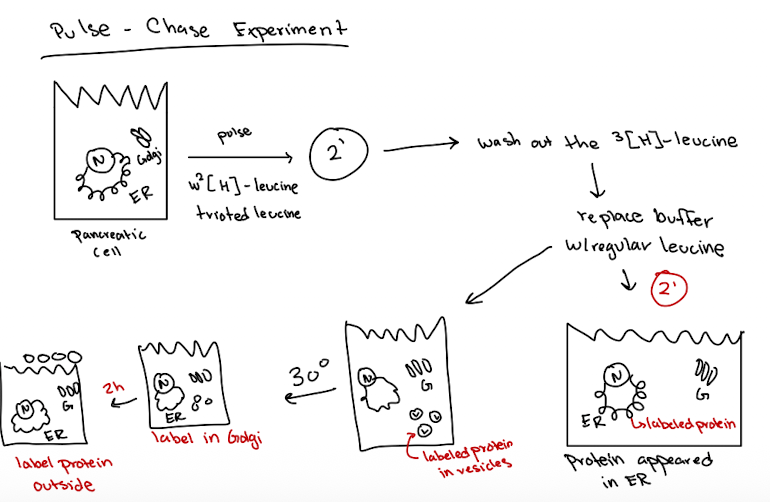 Pulse - Chase Experiment
N
Golgi
ER
Pancreatic
cell
pulse
w²[H]-leucine
trioted leucine
2'
wash out the ³[H]-leucine
replace buffer
w/regular leucine
2'
N
G
ER
labeled protein
Protein appeared
in ER
N
G
labeled protein
in vesicles
30°
N
ER
label in Golgi
2h
N
G
ER
label protein
outside